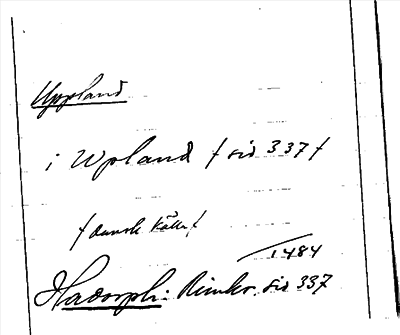 Uppland
i Upland / sid 337 /
/ dansk källa /
1484
Hadorph: Rimkr. sid 337